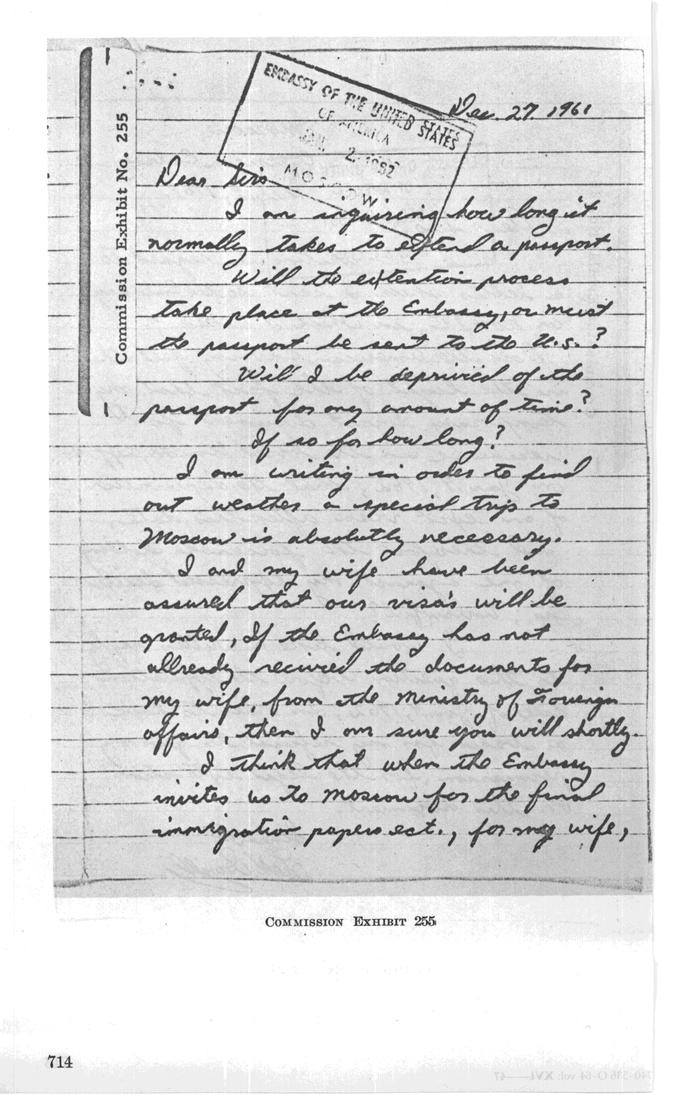 Commission Exhibit No. 255
EMBASSY OF THE UNITED STATES
OF AMERICA
JAN 2 1962
MOSCOW
Dec. 27, 1961
Dear Sirs
I am inquiring how long it
normally takes to extend a passport.
Will the extention process
take place at the Embassy, or must
the passport be sent to the U.S.?
Will I be deprivied of the
passport for any amount of time?
If so for how long?
I am writing in order to find
out weather a special trip to
Moscow is absolutly necessary.
I and my wife have been
assured that our visa's will be
granted, If the Embassy has not
allready recivied the documents for
my wife, from the Ministry of Foueign
affairs, then I am sure you will shortly.
I think that when the Embassy
invites us to Moscow for the final
immigration papers ect., for my wife,
COMMISSION EXHIBIT 255
714